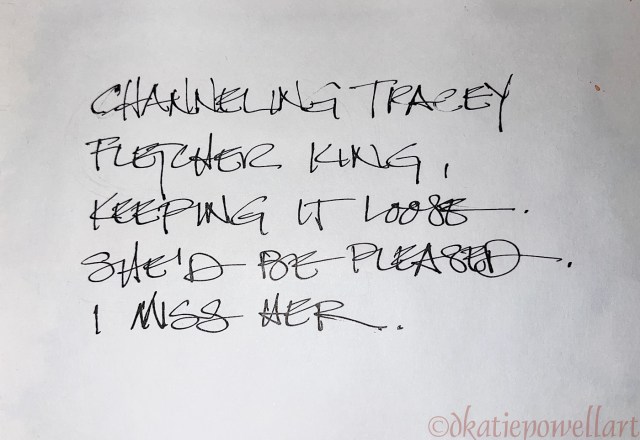 CHANNELING TRACEY
FLETCHER KING,
KEEPING IT LOOSE.
SHE'D BE PLEASED.
I MISS HER..
©dkatiepowellart